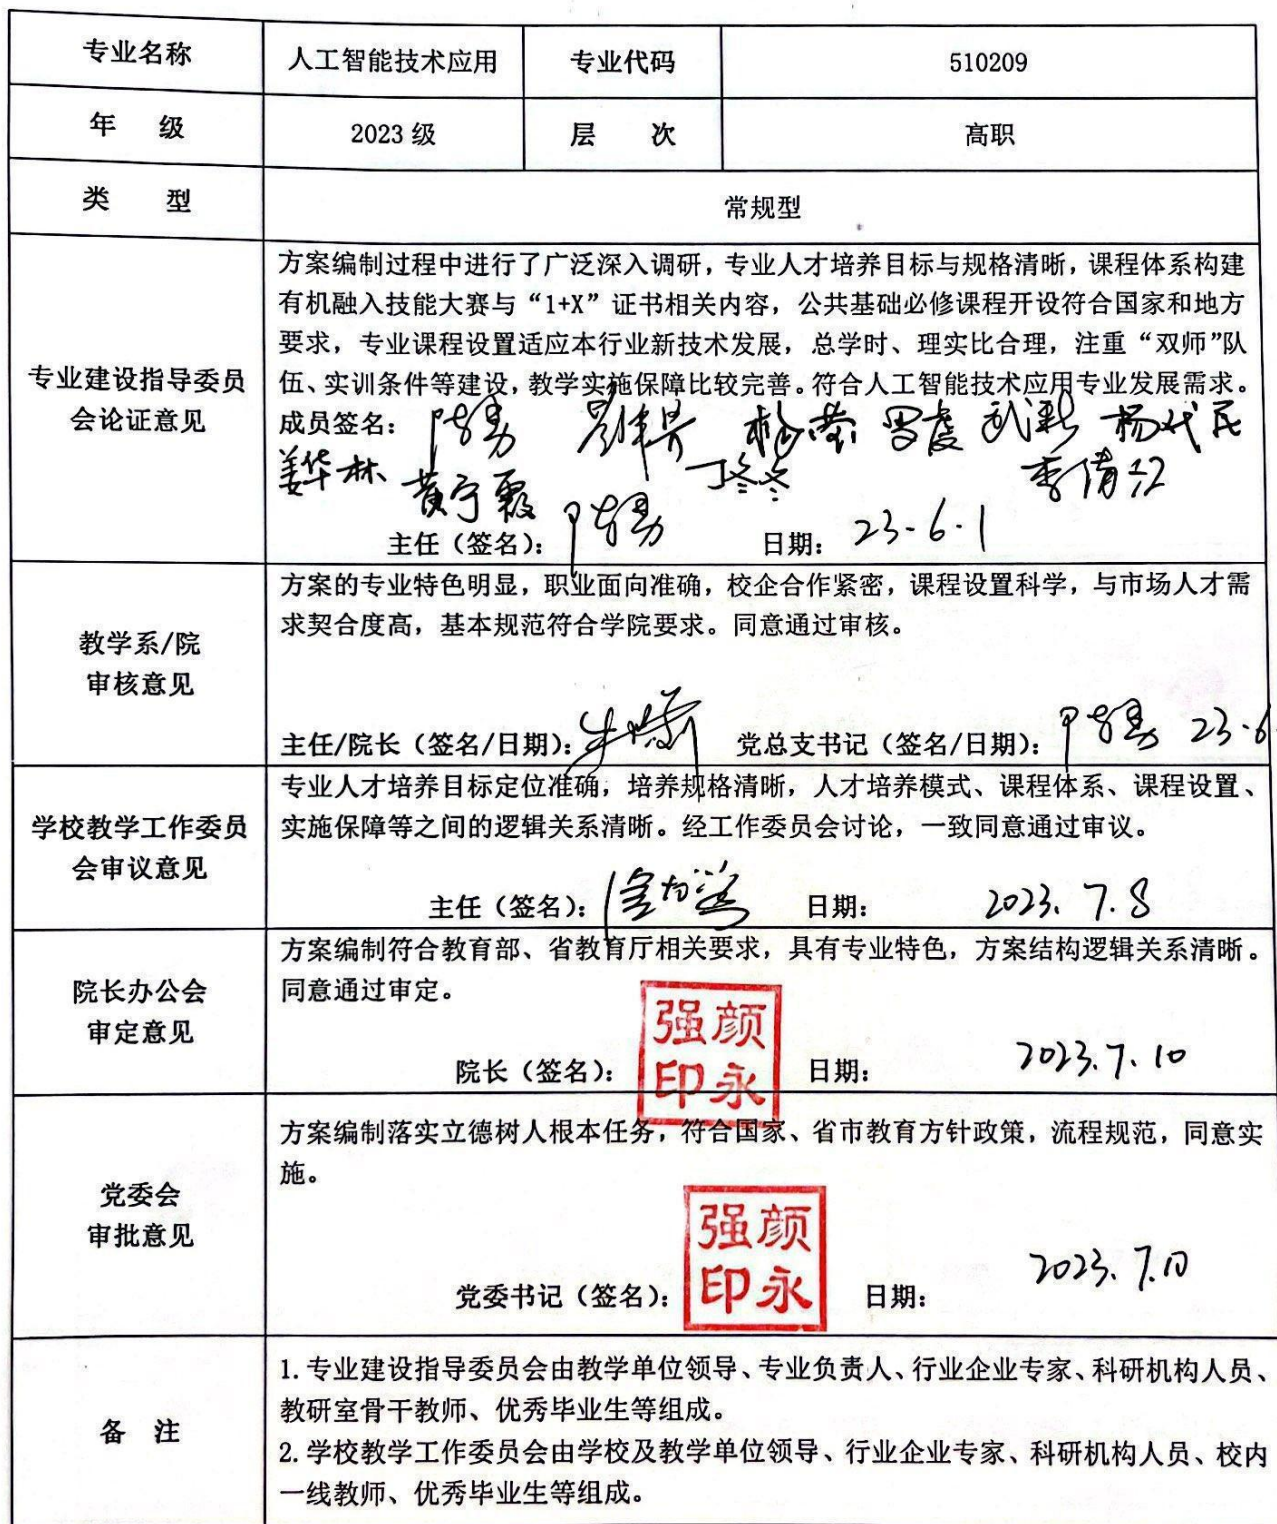 专业名称 人工智能技术应用 专业代码 510209
年 级 2023 级 层 次 高职
类 型 常规型
专业建设指导委员
会论证意见
方案编制过程中进行了广泛深入调研，专业人才培养目标与规格清晰，课程体系构建
有机融入技能大赛与“1+X”证书相关内容，公共基础必修课程开设符合国家和地方
要求，专业课程设置适应本行业新技术发展，总学时、理实比合理，注重“双师”队
伍、实训条件等建设，教学实施保障比较完善。符合人工智能技术应用专业发展需求。
成员签名： 武新 杨代民
姜华林 黄宁霞 丁冬冬 李倩红
主任（签名）： 日期： 23-6-1
教学系/院
审核意见
方案的专业特色明显，职业面向准确，校企合作紧密，课程设置科学，与市场人才需
求契合度高，基本规范符合学院要求。同意通过审核。
主任/院长（签名/日期）： 党总支书记（签名/日期）： 23-6
学校教学工作委员
会审议意见
专业人才培养目标定位准确，培养规格清晰，人才培养模式、课程体系、课程设置、
实施保障等之间的逻辑关系清晰。经工作委员会讨论，一致同意通过审议。
主任（签名）： 日期： 2023.7.8
院长办公会
审定意见
方案编制符合教育部、省教育厅相关要求，具有专业特色，方案结构逻辑关系清晰。
同意通过审定。
强颜
印永
院长（签名）： 日期： 2023.7.10
党委会
审批意见
方案编制落实立德树人根本任务，符合国家、省市教育方针政策，流程规范，同意实
施。
强颜
印永
党委书记（签名）： 日期： 2023.7.10
备 注
1.专业建设指导委员会由教学单位领导、专业负责人、行业企业专家、科研机构人员、
教研室骨干教师、优秀毕业生等组成。
2.学校教学工作委员会由学校及教学单位领导、行业企业专家、科研机构人员、校内
一线教师、优秀毕业生等组成。